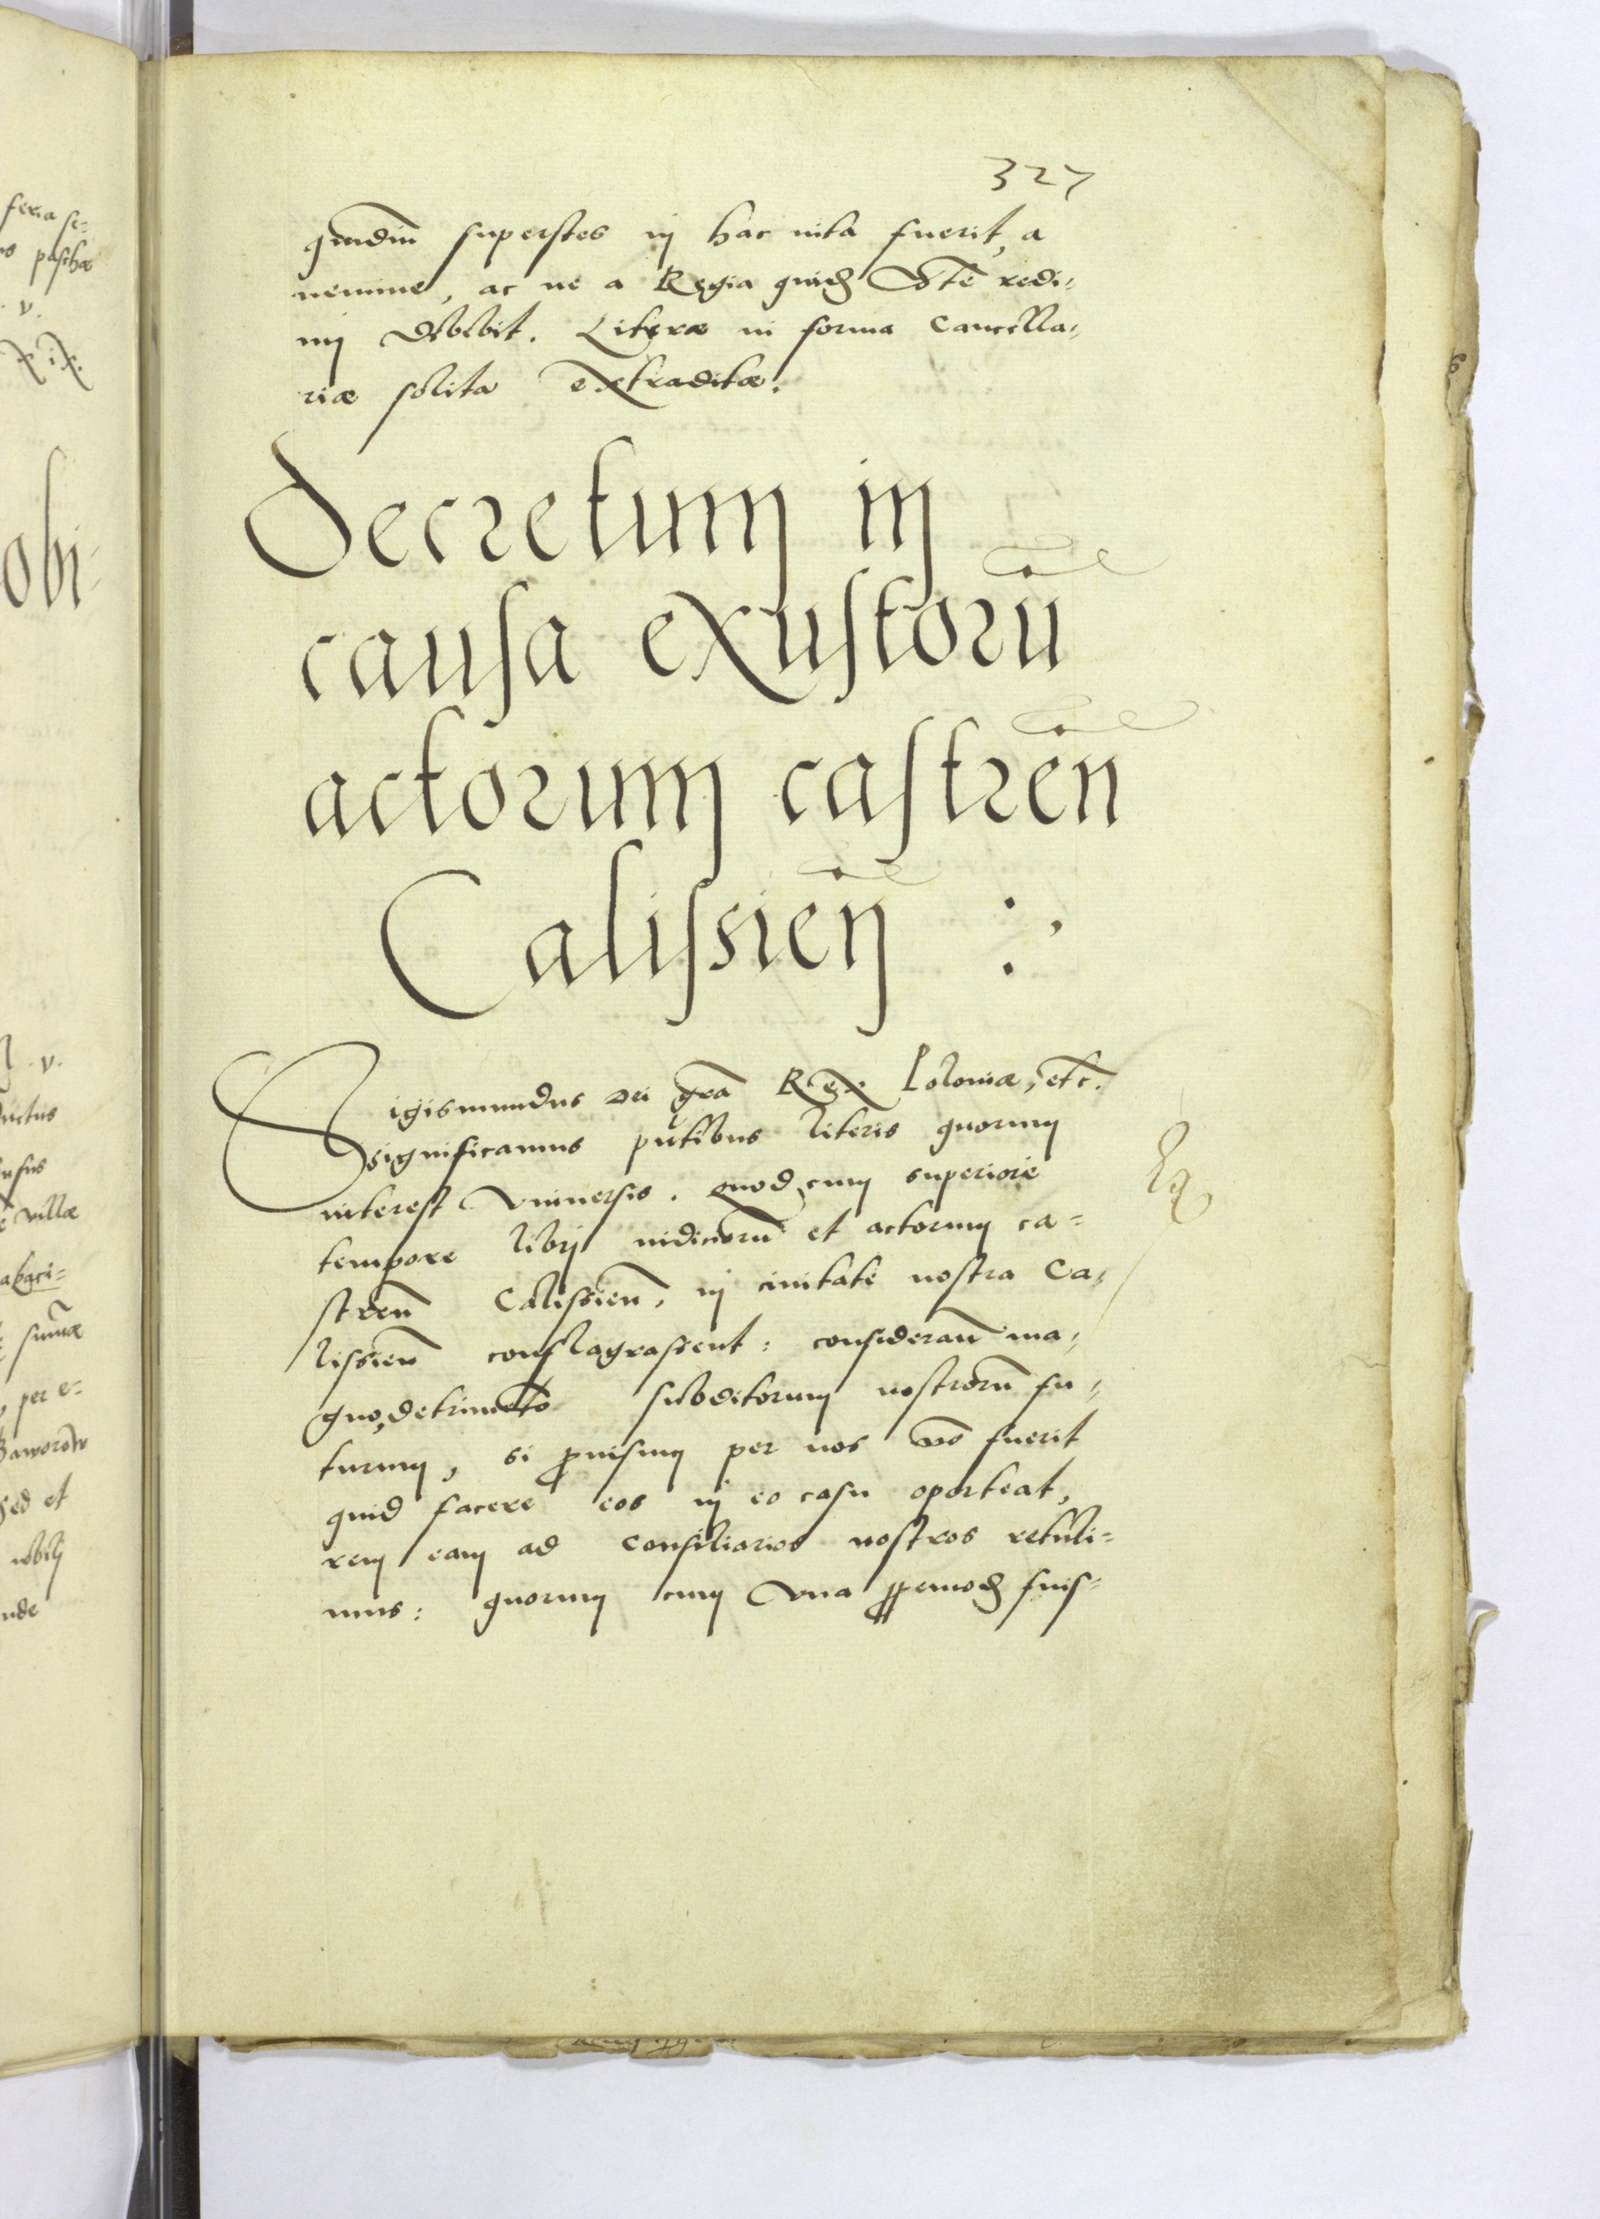 327
quādiu superstes in hac vita fuerit, a
nemine, ac ne a Regia quidē Mte redi-
mi debebit. Literæ in forma Cancella-
riæ solita extraditæ.
Decretum in
causa exustorū
actorum castreñ
Calissieñ :
Sigismundus Dei gřa Rex Poloniæ, etc.
significamus pñtibus literis quorum
interest vniuersis. Quod cum superiore
tempore libri iudiciorū et actorum ca-
streñ Calissieñ, in ciuitate nostra Ca-
lissieñ conflagrassent: considerañ ma-
gno detrimēto subditorum nostrorū fu-
turum, si prouisum per nos nō fuerit
quid facere eos in eo casu oporteat,
rem eam ad Consiliarios nostros retuli-
mus: quorum cum vna fuis-
feria se-
pascha
v.
xix.
obi-
v.
villæ
sum̃æ
per e-
sed et
nobili